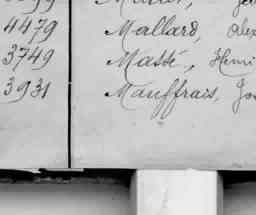 4479 Mallard, Alex
3749 Massé, Henri
3931 Mauffrais, Jos